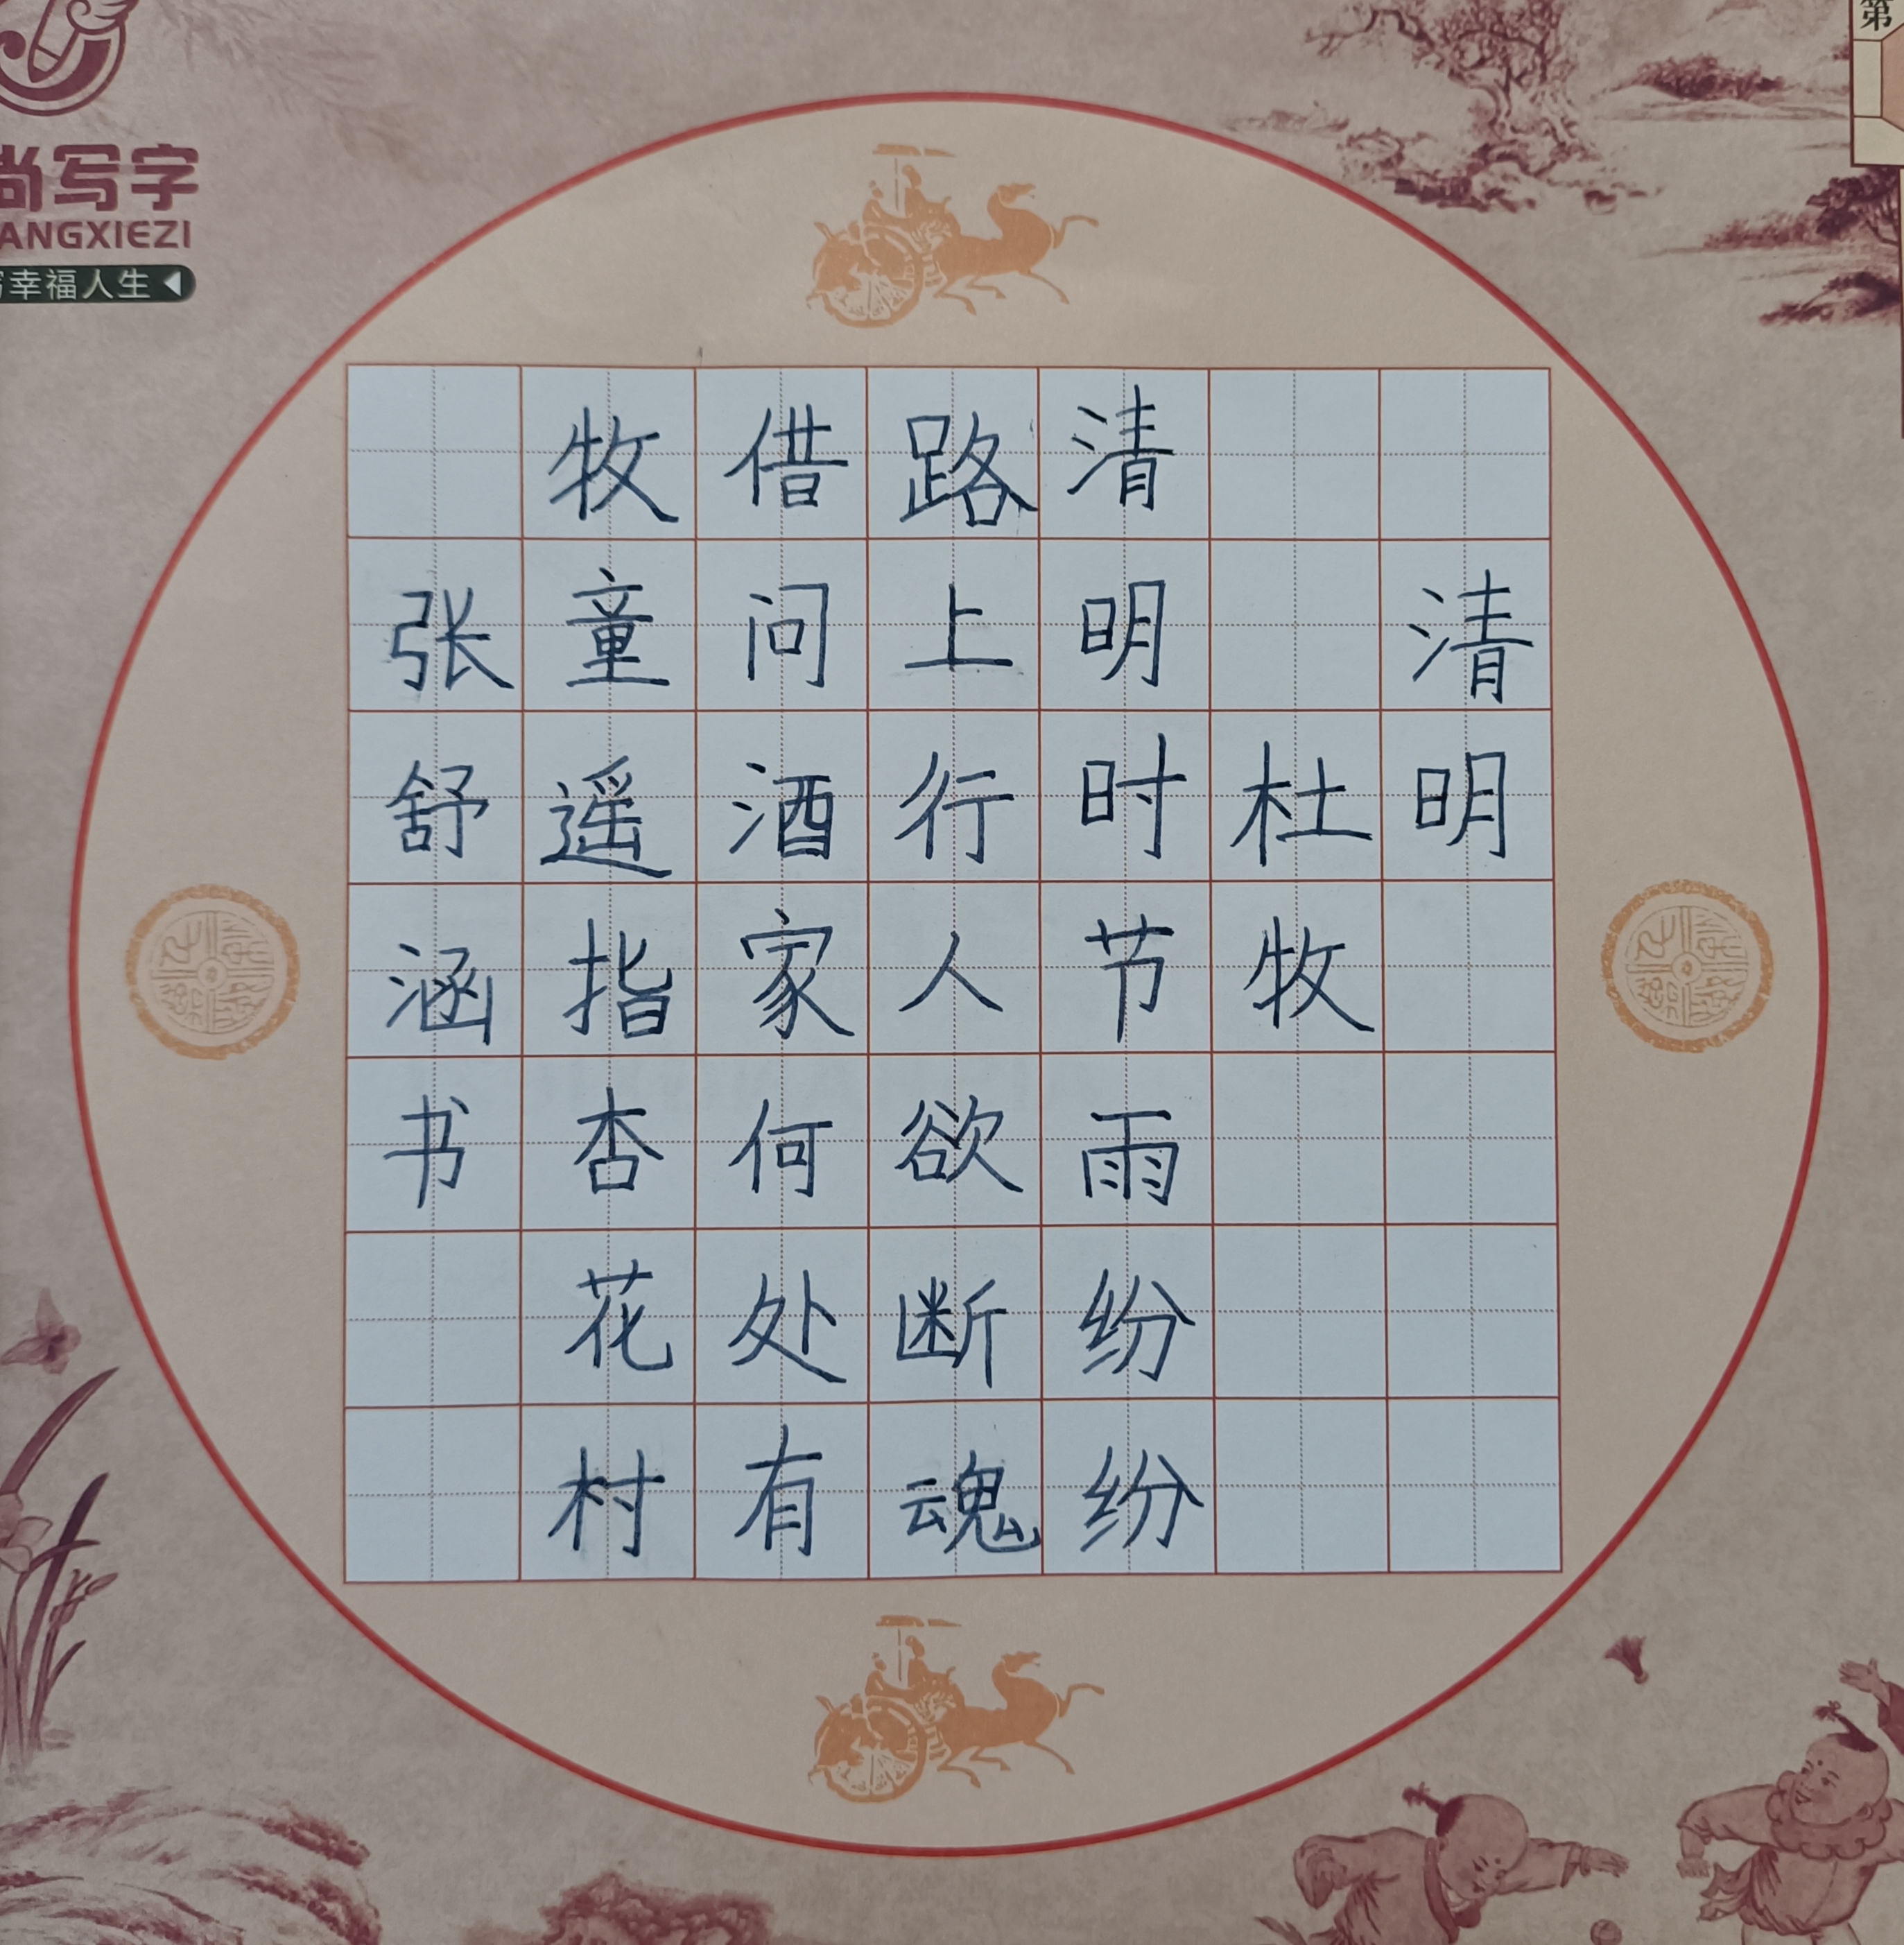 清明
杜牧
清明时节雨纷纷
路上行人欲断魂
借问酒家何处有
牧童遥指杏花村
张舒涵书
尚写字
ANGXIEZI
幸福人生
第